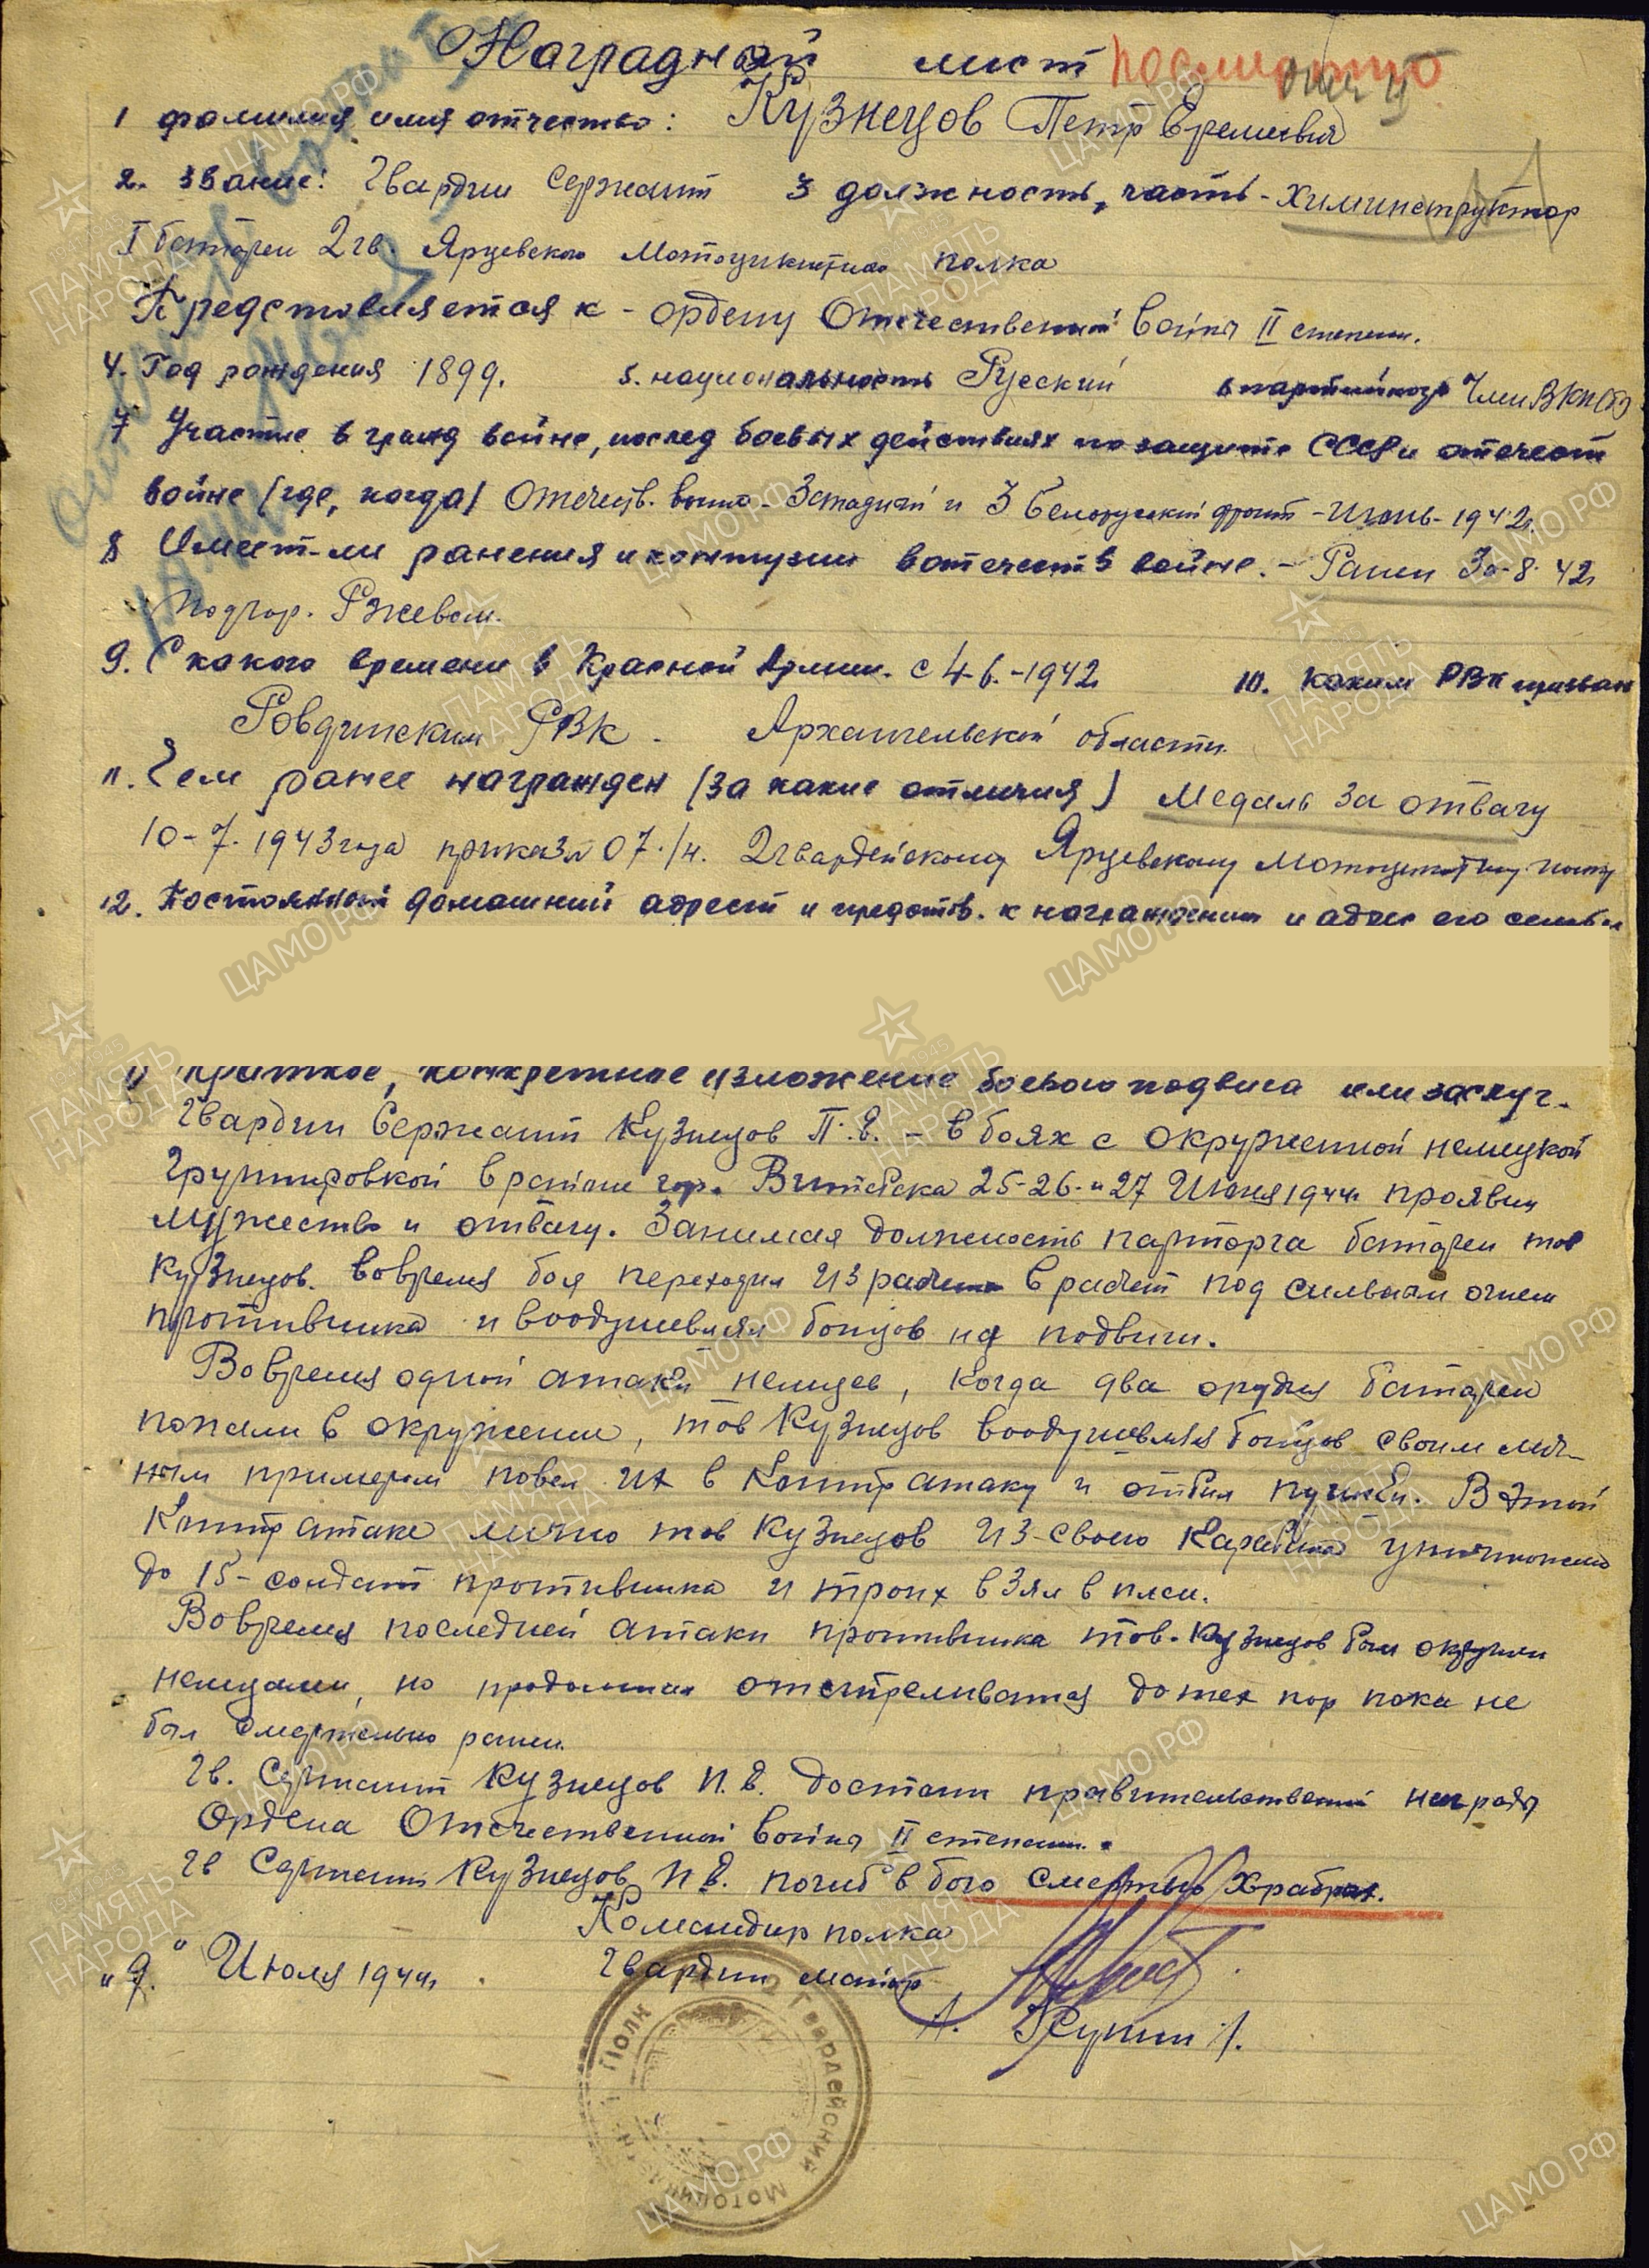 Наградной лист посмертно
1 фамилия имя отчество: Кузнецов Петр Еремеевич
2. звание: Гвардии Сержант 3 должность, часть - химинструктор
I батареи 2 гв. Ярцевского Мотоциклетного полка
Представляется к - ордену Отечественной войны II степени.
4. Год рождения 1899. 5. национальность Русский 6 партийность Член ВКП(б)
7 Участие в гражд войне, послед боевых действиях по защите СССР и отечест
войне (где, когда) Отечеств. война - Западный и 3 Белорусский фронт - Июнь - 1942г.
8 Имеет-ли ранения и контузии в отечеств войне. - Ранен 30-8-42г
под гор. Ржевом.
9. С какого времени в Красной Армии. с 4-6.-1942 10. Каким РВК призван
Ровдинским РВК - Архангельской области
11. Чем ранее награжден (за какие отличия) Медаль За отвагу
10-7.1943 года приказ № 07./н. 2 гвардейскому Ярцевскому Мотоциклетному полку
12. Постоянный домашний адрест и представ. к награждению и адрес его семьи
Краткое, конкретное изложение боевого подвига или заслуг.
Гвардии Сержант Кузнецов П.Е. - в боях с окруженной немецкой
группировкой в районе гор. Витебска 25-26-и 27 Июня 1944г проявил
мужество и отвагу. Занимая должность парторга батареи тов
Кузнецов. во время боя переходил из расчета в расчет под сильным огнем
противника и воодушевлял бойцов на подвиги.
Во время одной атаки немцев, когда два орудия батареи
попали в окружение, тов Кузнецов воодушевляя бойцов своим лич-
ным примером повел их в контратаку и отбил пушки. В этой
контратаке лично тов Кузнецов из-своего карабина уничтожено
до 15-солдат противника и троих взял в плен.
Во время последней атаки противника тов. Кузнецов был окружен
немцами, но продолжал отстреливатся до тех пор пока не
был смертельно ранен.
Гв. Сержант Кузнецов П.Е. достоин правительственной награды
Ордена Отечественной войны II степени.
Гв Сержант Кузнецов П.Е. погиб в бою смертью храбрых.
Командир полка
"9." Июля 1944г. Гвардии майор
2 Гвардейский Мотоцик Полк
ЦАМО РФ
ПАМЯТЬ НАРОДА